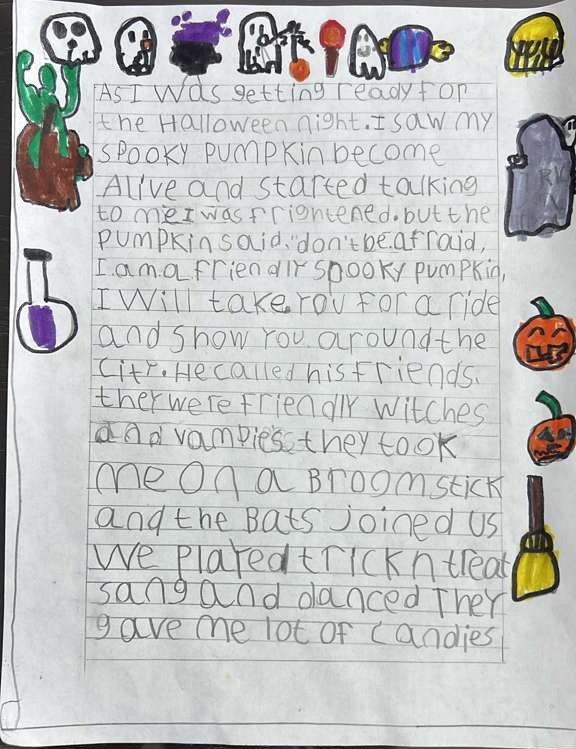 As I was getting ready for
the Halloween night. I saw my
spooky pumpkin become
Alive and started talking
to me I was frightened. but the
pumpkin said, "don't be afraid,
I am a friendly spooky pumpkin,
I will take you for a ride
and show you around the
City. He called his friends.
they were friendly witches
and vampies they took
me on a broomstick
and the Bats joined us
We played trick n treat
sang and danced They
gave me lot of candies